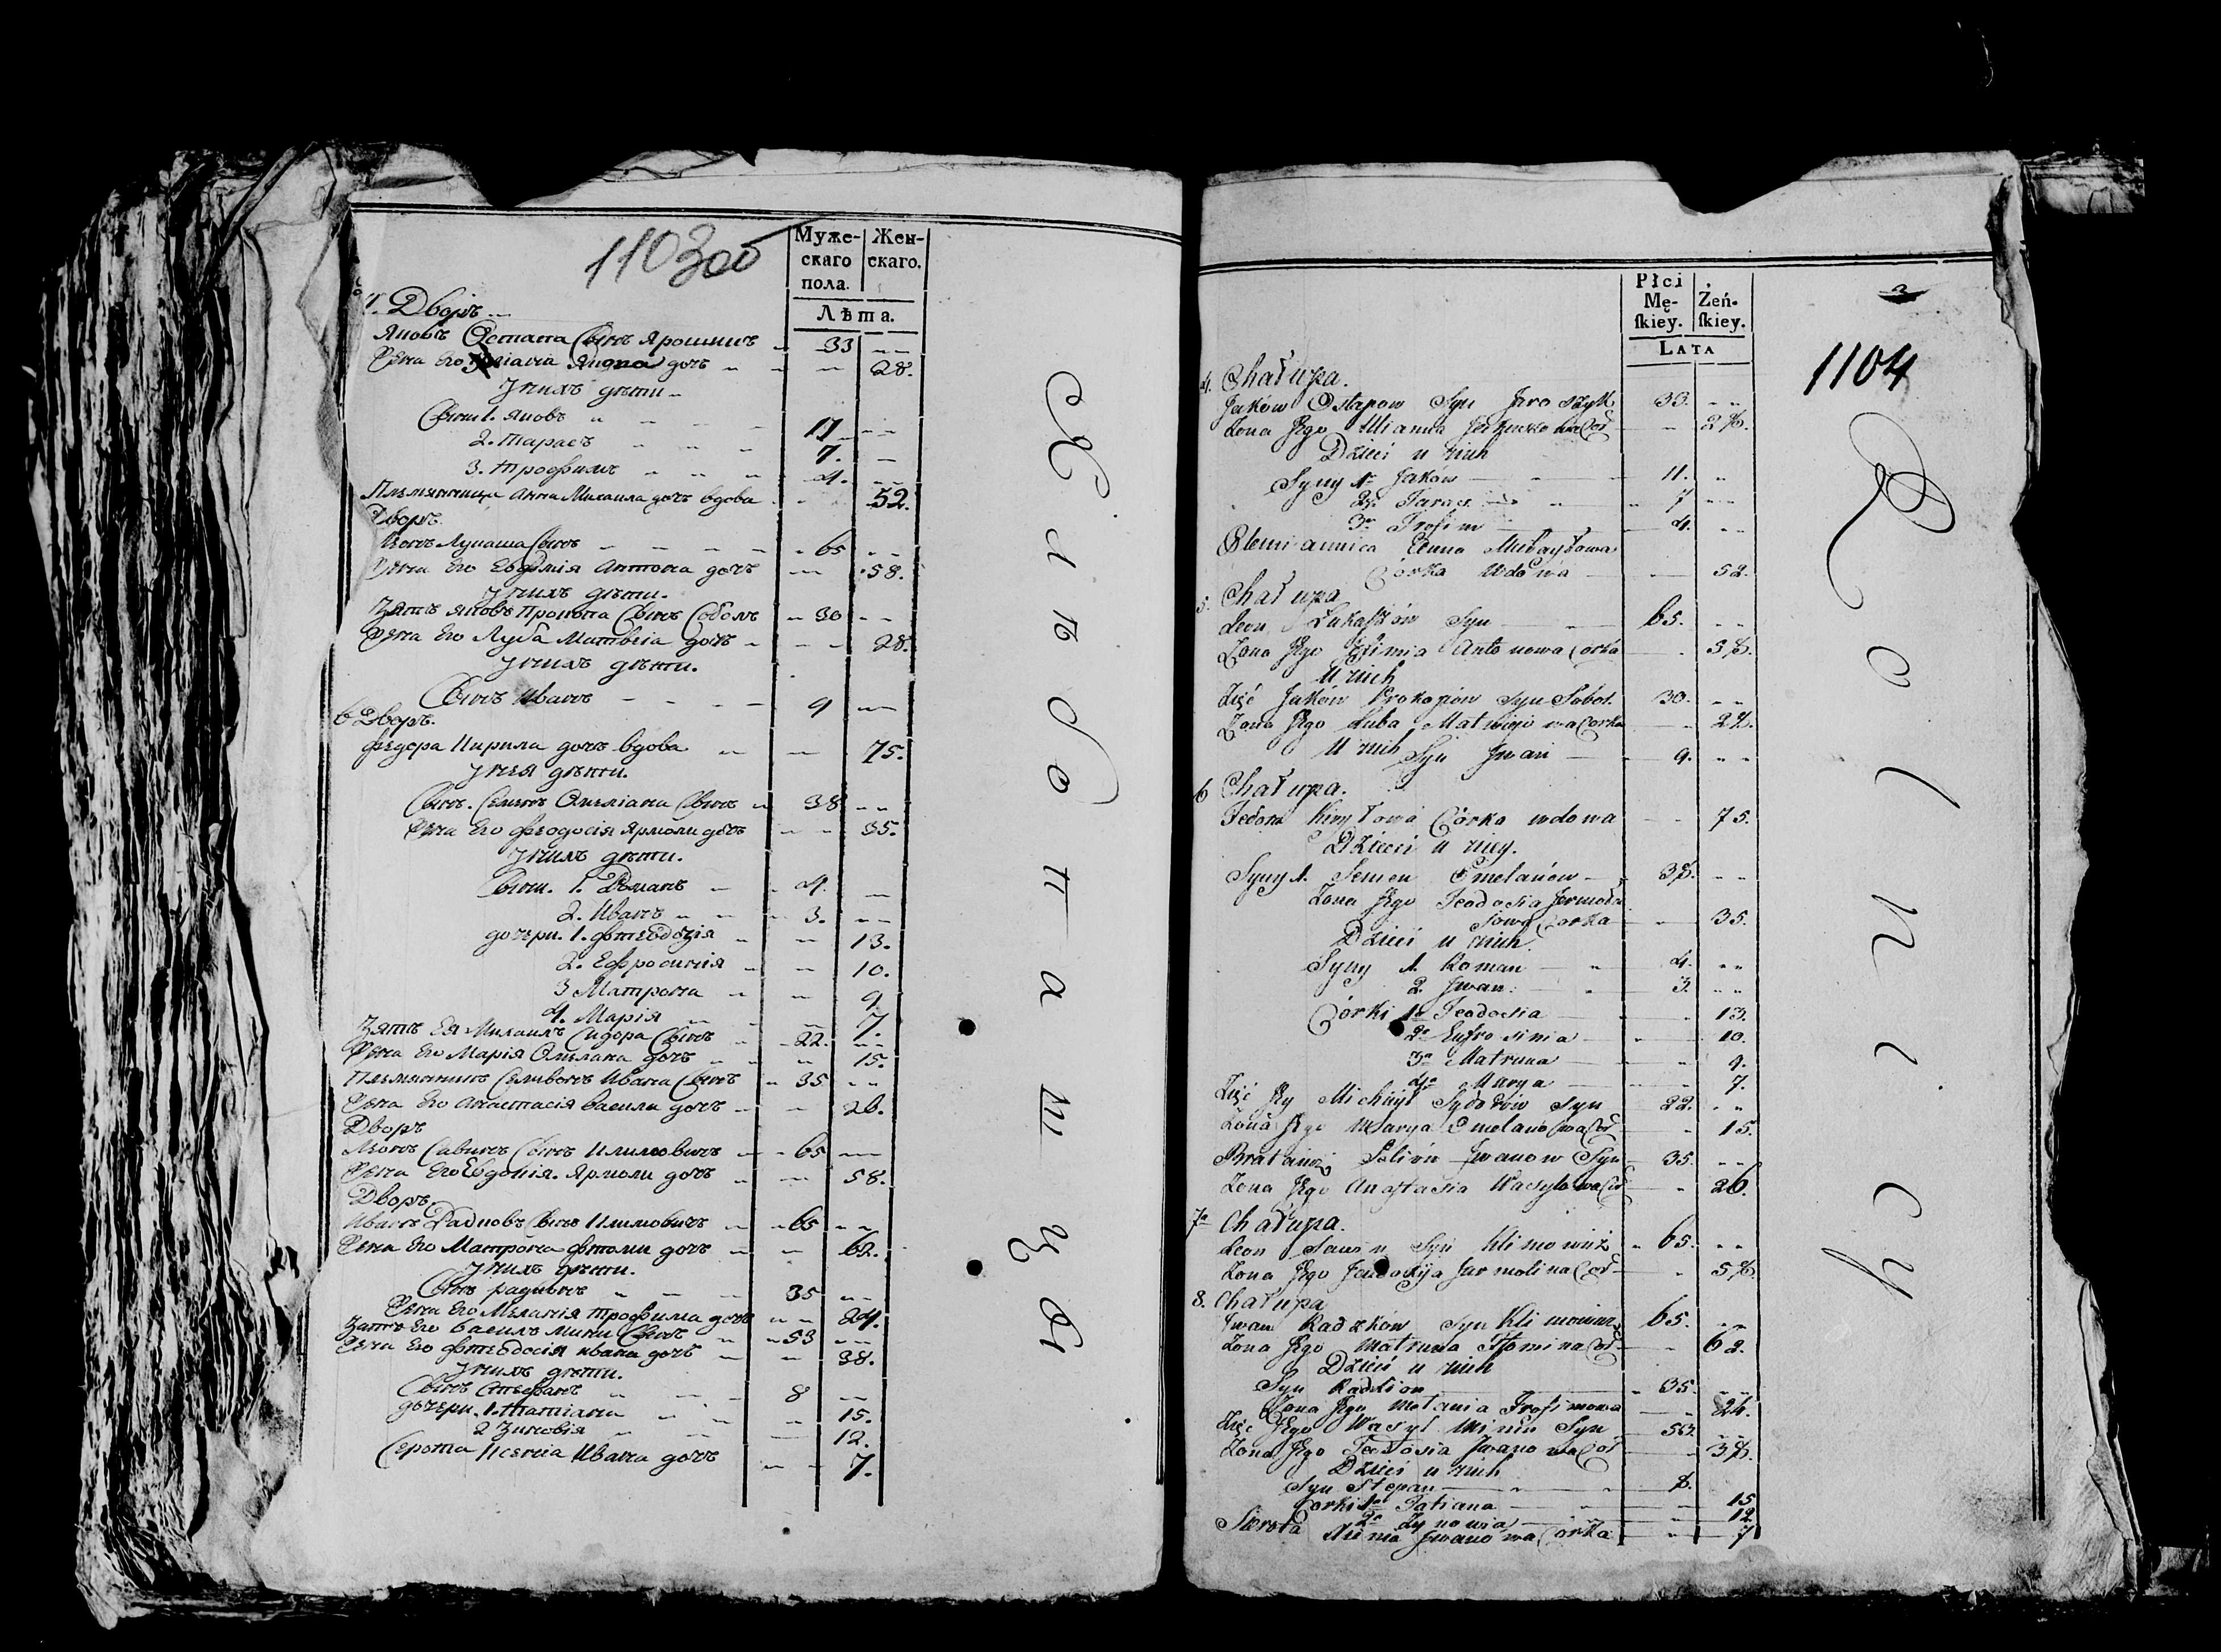 1103 об
Муже-
скаго
пола.
Жен-
скаго.
Лѣта.
4. Дворъ
Яковъ Остапа Сынъ Ярошикъ 33
Жена Его дочь 28.
У нихъ дѣти
Сыны 1. Яковъ 11
2. Тарасъ 7.
3. Трофимъ 4.
Племянница Анна Михаила дочь вдова 52.
Дворъ
Леонъ Лукаша Сынъ 65
Жена Его Евфимія Антона дочь 58.
У нихъ дѣти.
Зять Яковъ Прокопа Сынъ Соболь 30
Жена Его Люба Матвѣia дочь 28.
У нихъ дѣти.
Сынъ Иванъ 9
6 Дворъ.
Федора Кирила дочь вдова 75.
У нея дѣти.
Сынъ. Семенъ Омеліана Сынъ 38
Жена Его Феодосія Ярмоли дочь 35.
У нихъ дѣти.
Сыны. 1. Романъ 4.
2. Иванъ 3.
дочери. 1. 13.
2. Ефросинія 10.
3 Матрона 9.
4. Марія 7.
Зять Ея Михаилъ Сидора Сынъ 22.
Жена Его Марія Омелана дочь 15.
Племянникъ Селивонъ Ивана Сынъ 35
Жена Его Анастасія Васила дочь 26.
Дворъ
Леонъ Савинъ Сынъ Климовичъ 65
Жена Его Евдокія Ярмоли дочь 58.
Дворъ
Иванъ Радковъ Сынъ Климовичъ 65
Жена Его Матрона Фтоми дочь 62.
У нихъ дѣти.
Сынъ Радивонъ 35
Жена Его Меланія Трофима дочь 24.
Зять Его Василь Мини Сынъ 53
Жена Его Ивана дочь 38.
У нихъ дѣти.
Сынъ Стефанъ 8
дочери. 1. Татіана 15.
2 Зиновія 12.
Сирота Ксенія Ивана дочь 7.
Хлѣбопашцы
Płci
Mę-
skiey.
Żeń-
skiey.
Lata
3
1104
4. Chałupa.
Jaków Ostapow Syn Jaroszyk 33.
Żona Jego Ulianna 28.
Dzieci u nich
Syny 1o Jaków 11.
2o Taras 7
3o Trofim 4.
Plemiannica Anna Michayłowa
Córka Wdowa 52.
5. Chałupa
Leon Łukaszów Syn 65.
Żona Jego Jefimia Antonowa Córka 58.
U nich
Zięć Jaków Prokopiów Syn Sobol 30.
Żona Jego Luba Matwiejowa Corka 28.
U nich Syn Jwan 9.
6 Chałupa.
Fedora Kiryłowa Córka wdowa 75.
Dzieci u niey.
Syny 1. Semen Omelanów 38.
Żona Jego Teodosia Jermoła
iowa Corka 35.
Dzieci u nich.
Syny 1. Roman 4.
2. Jwan 3.
Córki 1a Teodosia 13.
2a Eufrosinia 10.
3a Matruna 9.
4a Marya 7.
Zięć Jey Michaył Sydorów Syn 22.
Żona Jego Marya Omelanowa Cor 15.
Bratanic Selión Jwanow Syn 35.
Żona Jego Anastasia Wasylowa Cor 26.
7a Chałupa.
Leon Sawin Syn Klimowicz 65.
Żona Jego Jewdokija Jarmolina Cor 58.
8. Chałupa
Jwan Radzków Syn Klimowicz 65.
Żona Jego Matruna Ftomina Cor 62.
Dzieci u nich
Syn Radziion 35.
Żona Jego Melania Trofimowa 24.
Zięć Jego Wasyl Minin Syn 53.
Żona Jego Teodosia Jwanowa Cor 38.
Dzieci u nich
Syn Stepan 8.
Corki 1a Tatiana 15
2a Zynowia 12
Sierota Jwanowa Corka 7
Rolnicy